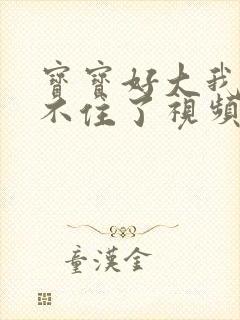 寶寶好大我
不住了視頻
童漢金